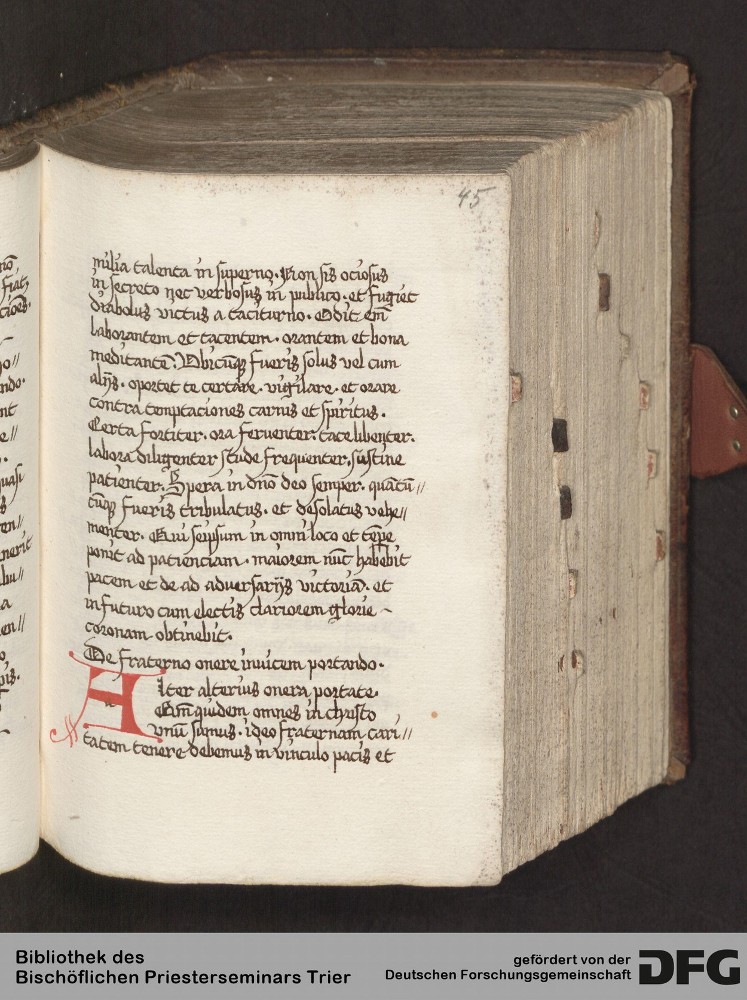 45
milia talenta in superno. Non sis ociosus
in secreto nec verbosus in publico. et fugiet
diabolus victus a taciturno. Odit em̄
laborantem et tacentem. orantem et bona
meditantē. Vbicūqꝫ fueris solus vel cum
alijs. oportet te certare. vigilare. et orare
contra temptaciones carnis et spiritus.
Certa fortiter. ora feruenter. tace libenter.
labora diligenter stude frequenter. sustine
patienter. Spera in dn̄o deo semper. quātū//
cūqꝫ fueris tribulatus. et desolatus vehe//
menter. Qui seipsum in omni loco et tēpe
ponit ad patienciam. maiorem nūc habebit
pacem et de ad aduersarijs victoriā. et
in futuro cum electis clariorem glorie
coronam. obtinebit.
De fraterno onere inuicem portando.
Alter alterius onera portate.
Qm̄ quidem omnes in christo
vnū sumus. ideo fraternam cari//
tatem tenere debemus in vinculo pacis et
Bibliothek des
Bischöflichen Priesterseminars Trier
gefördert von der
Deutschen Forschungsgemeinschaft
DFG